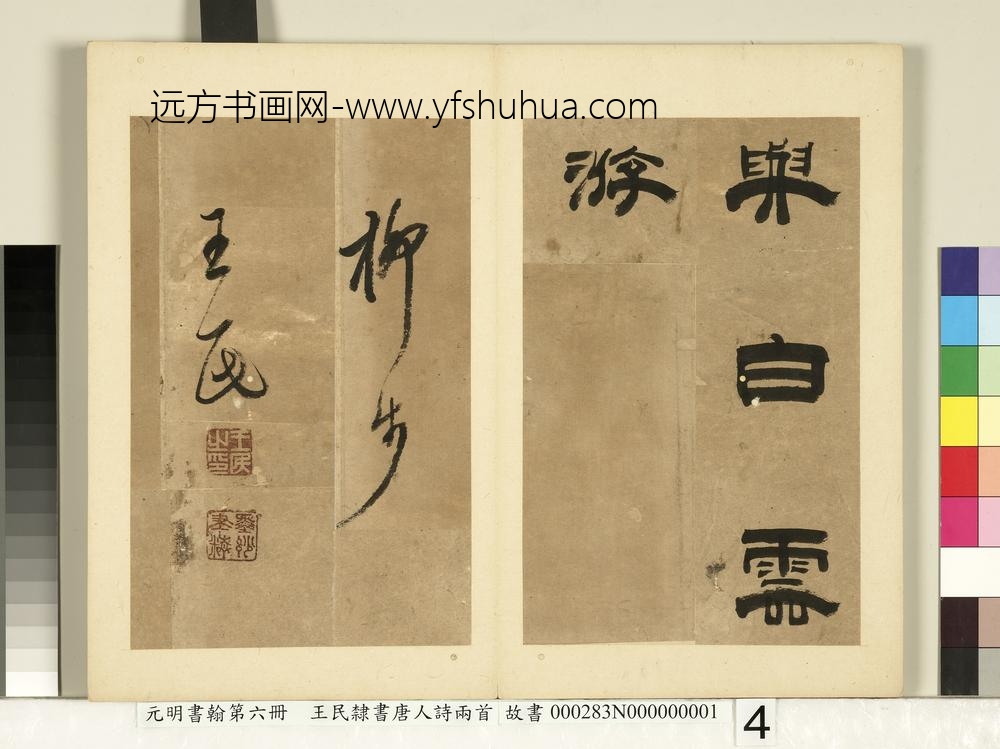 远方书画网-www.yfshuhua.com
與白雲
游
柳步
王民
王民之印
元明書翰第六冊 王民隸書唐人詩兩首 故書000283N000000001
4